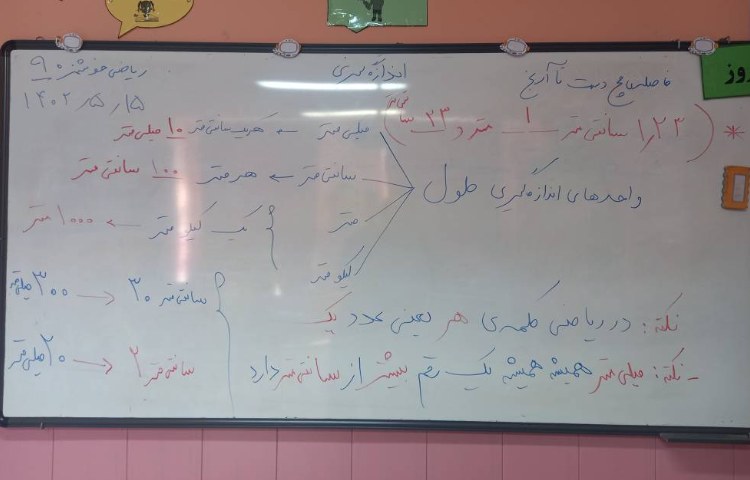 اندازه گیری
ریاضی خوشمزه ۹۰
۱۴۰۲/۵/۱۵
فاصله مچ دست تا آرنج
* (۱٫۲۳ سانتی متر ۱ متر و ۲۳ سانتی)
واحدهای اندازه گیری طول
میلی متر ← هر یک سانتی متر ۱۰ میلی متر
سانتی متر ← هر متر ۱۰۰ سانتی متر
متر
کیلو متر
یک کیلو متر ← ۱۰۰۰ متر
نکته: در ریاضی کلمه‌ی هر یعنی عدد یک
- نکته: میلی متر همیشه همیشه یک رقم بیشتر از سانتی متر دارد
۳۰ سانتی متر → ۳۰۰ میلی متر
۲ سانتی متر → ۲۰ میلی متر
روز